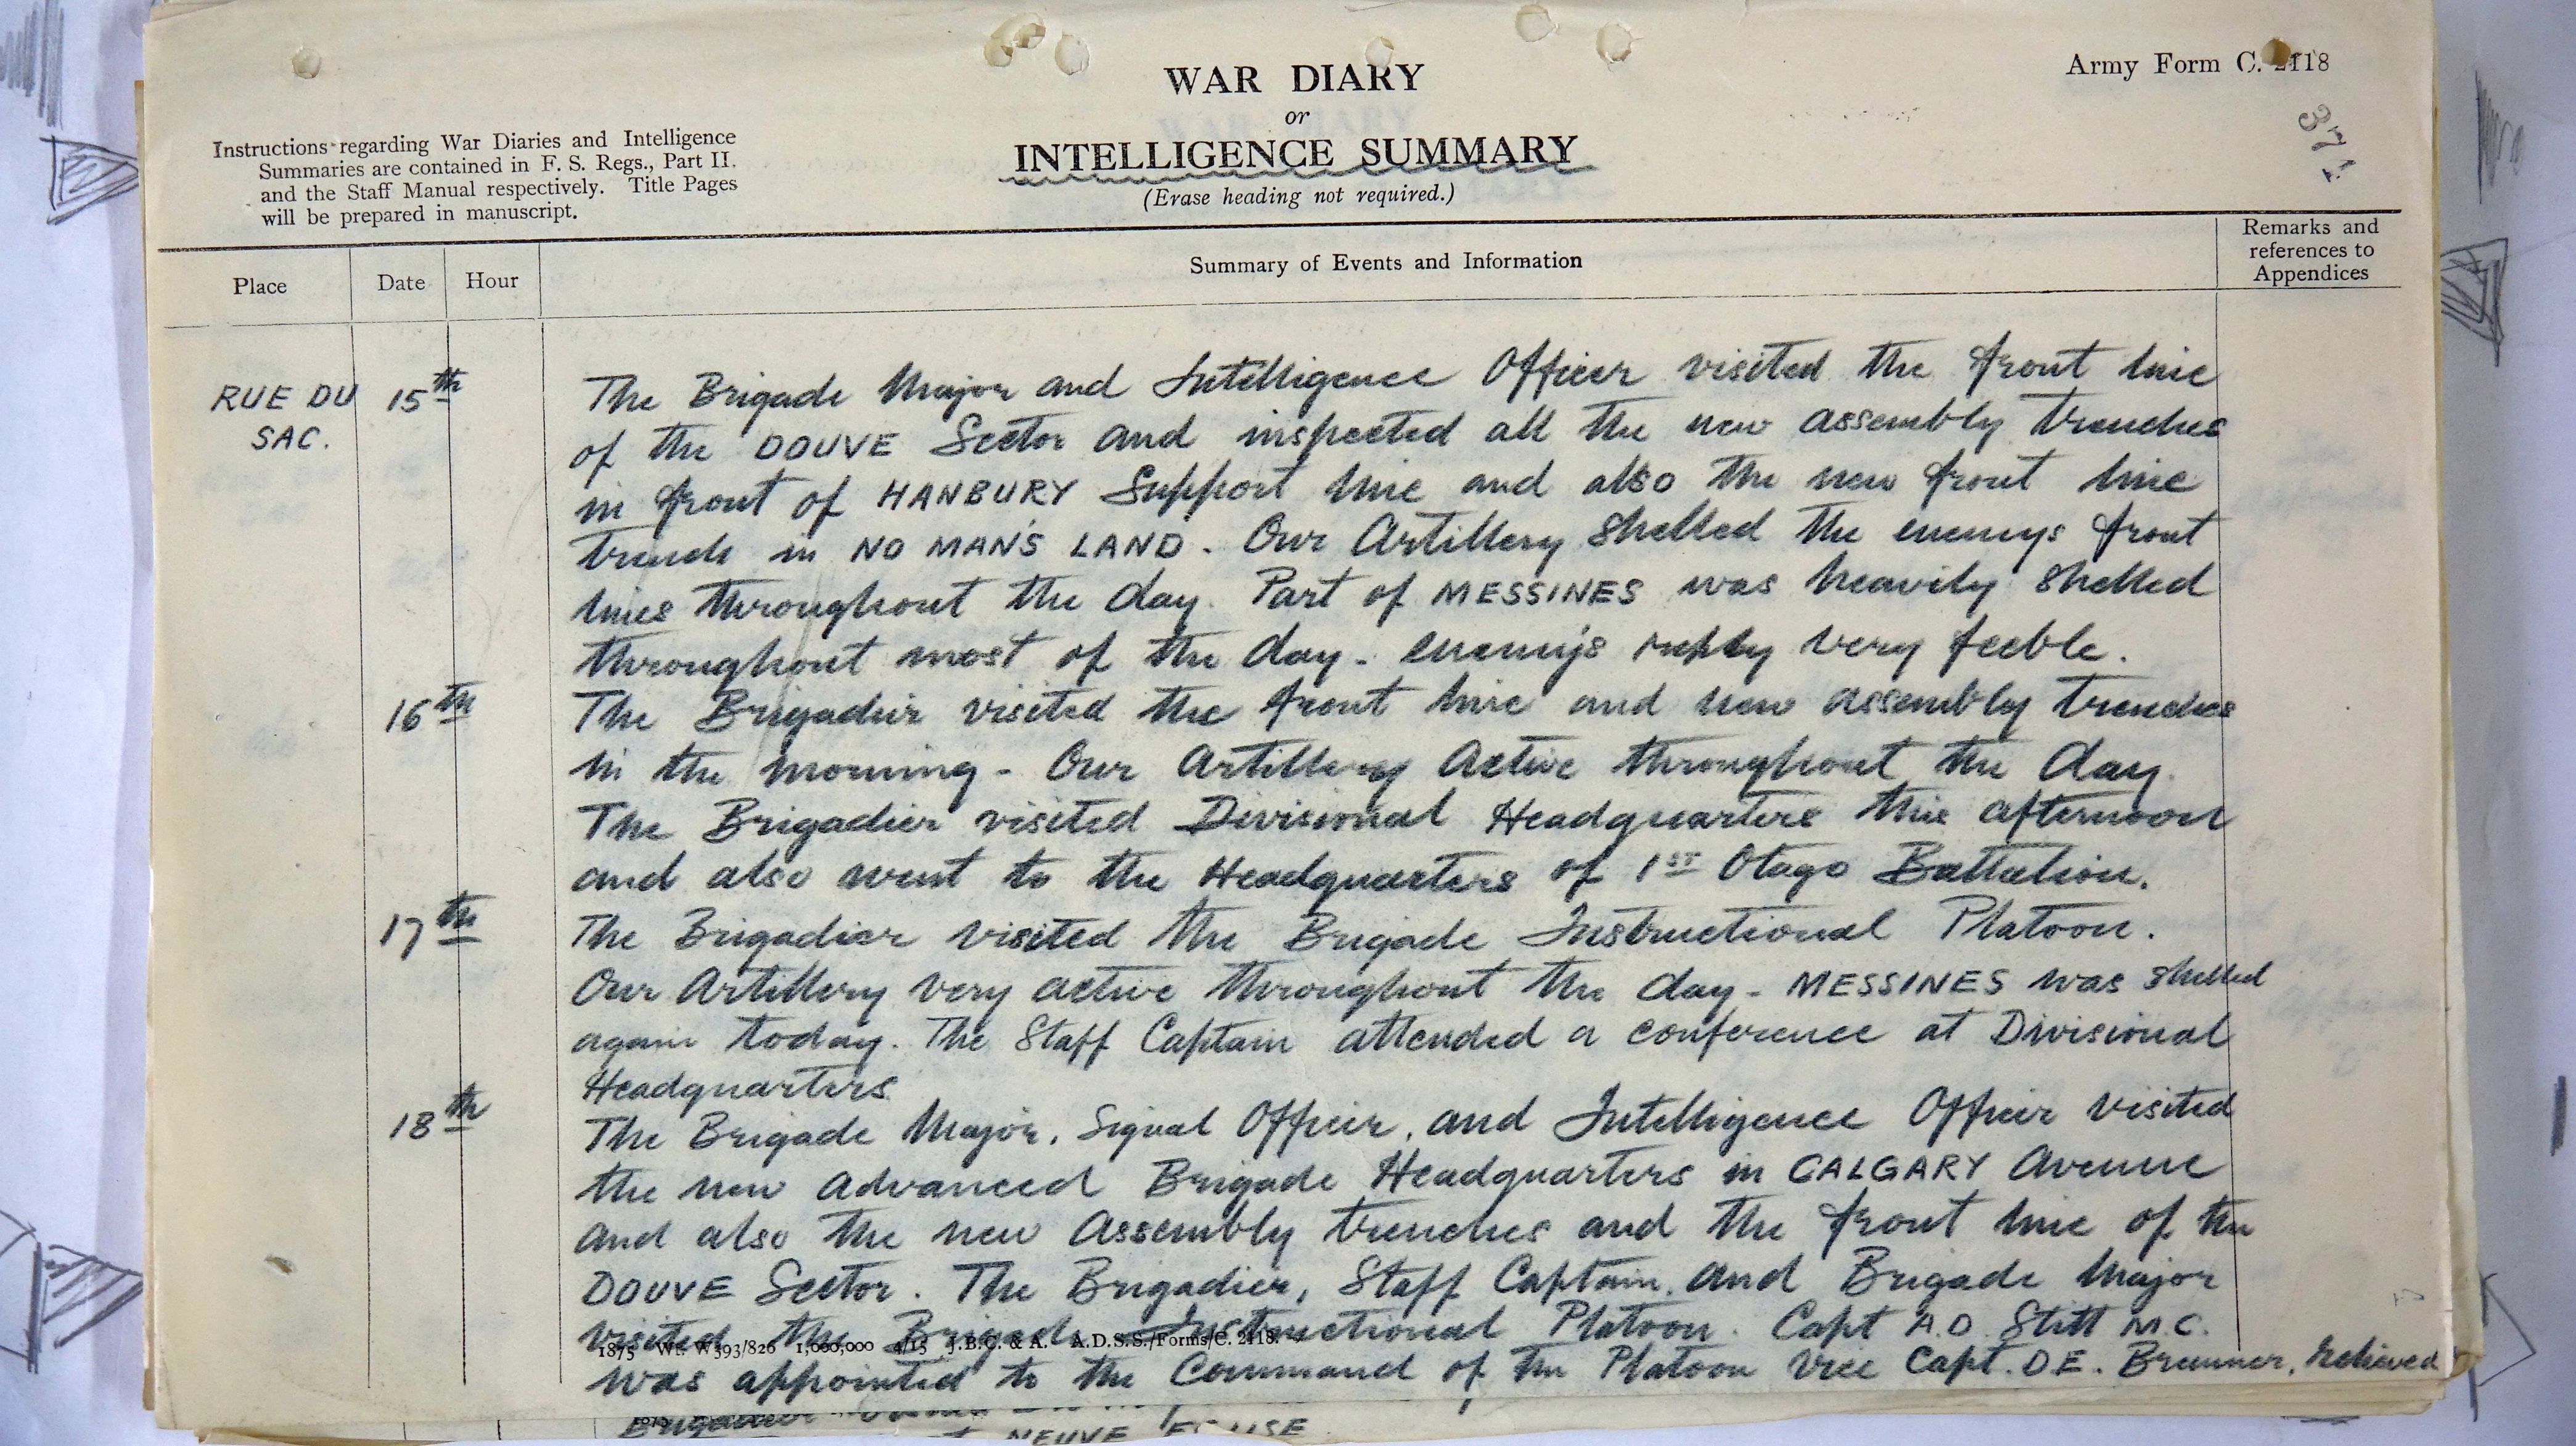 Army Form C. 2118
WAR DIARY
or
INTELLIGENCE SUMMARY
(Erase heading not required.)
Instructions regarding War Diaries and Intelligence
Summaries are contained in F. S. Regs., Part II.
and the Staff Manual respectively. Title Pages
will be prepared in manuscript.
Place
Date
Hour
Summary of Events and Information
Remarks and
references to
Appendices
RUE DU
SAC.
15th
The Brigade Major and Intelligence Officer visited the front line
of the DOUVE Sector and inspected all the new assembly trenches
in front of HANBURY Support line and also the new front line
trench in NO MAN'S LAND. Our Artillery shelled the enemys front
lines throughout the day. Part of MESSINES was heavily shelled
throughout most of the day - enemy's reply very feeble.
16th
The Brigadier visited the front line and new assembly trenches
in the morning - Our Artillery Active throughout the day.
The Brigadier visited Divisional Headquarters this afternoon
and also went to the Headquarters of 1ST Otago Battalion.
17th
The Brigadier visited the Brigade Instructional Platoon.
Our Artillery very active throughout the day - MESSINES was shelled
again today. The Staff Captain attended a conference at Divisional
Headquarters.
18th
The Brigade Major, Signal Officer, and Intelligence Officer visited
the new Advanced Brigade Headquarters in CALGARY Avenue
and also the new Assembly trenches and the front line of the
DOUVE Sector. The Brigadier, Staff Captain, and Brigade Major
visited the Brigade Instructional Platoon. Capt A.D. Stitt M.C.
1875 Wt. W593/826 1,000,000 4/15 J.B.C. & A. A.D.S.S./Forms/C. 2118.
was appointed to the Command of the Platoon vice Capt. D.E. Bremner, relieved
Brigadier
NEUVE EGLISE